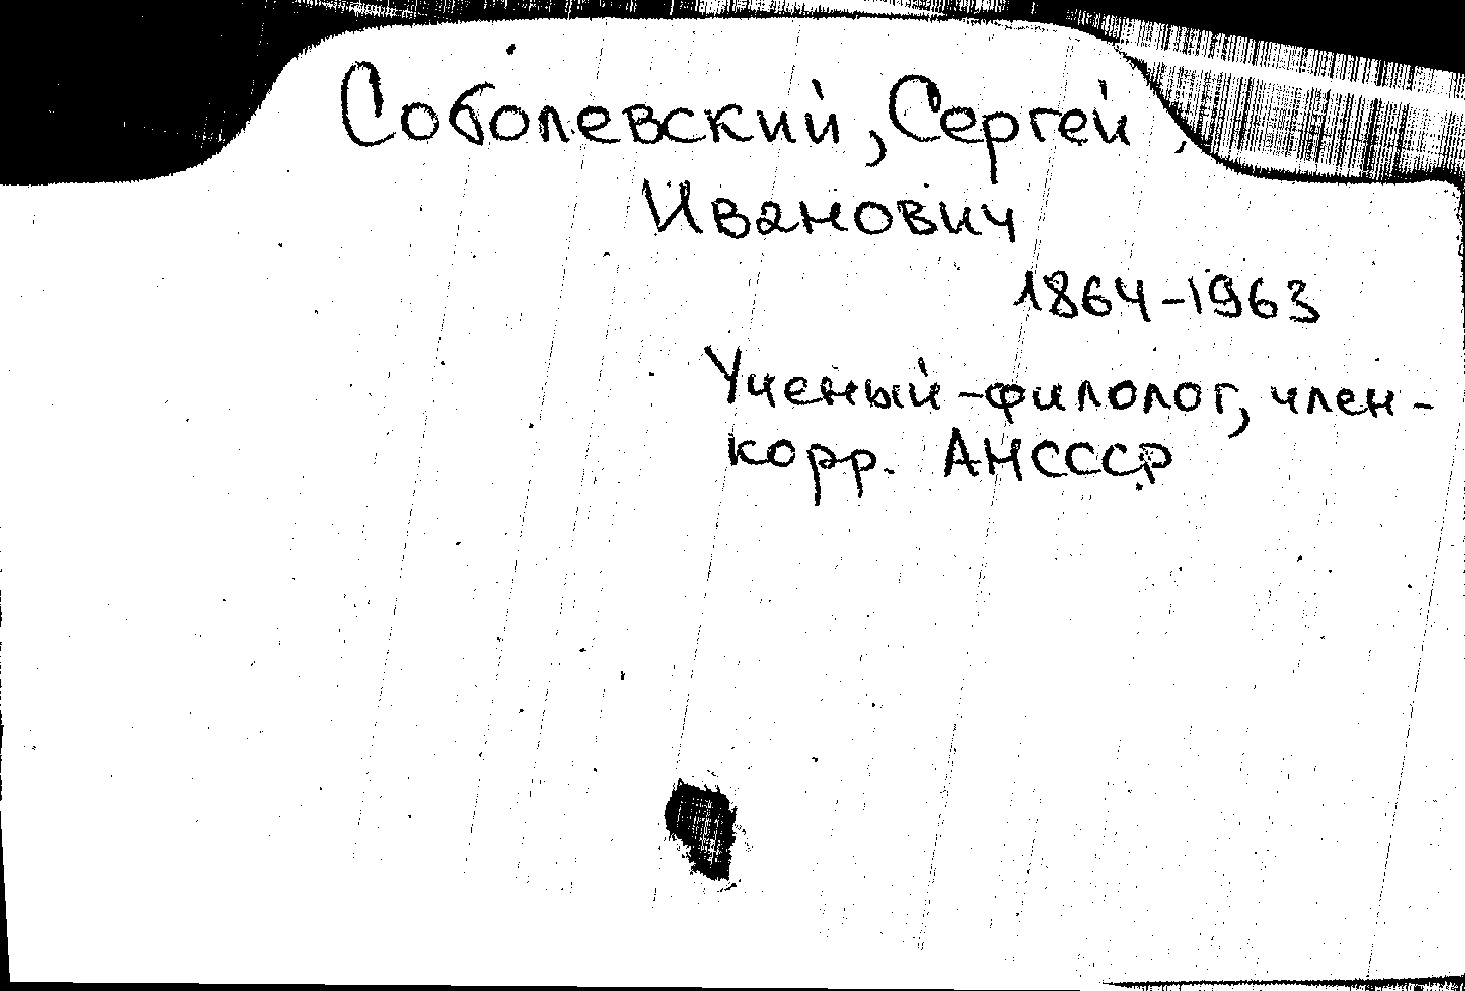 Соболевский, Сергей
Иванович
1864-1963
Ученый-филолог, член-
корр. АНСССР